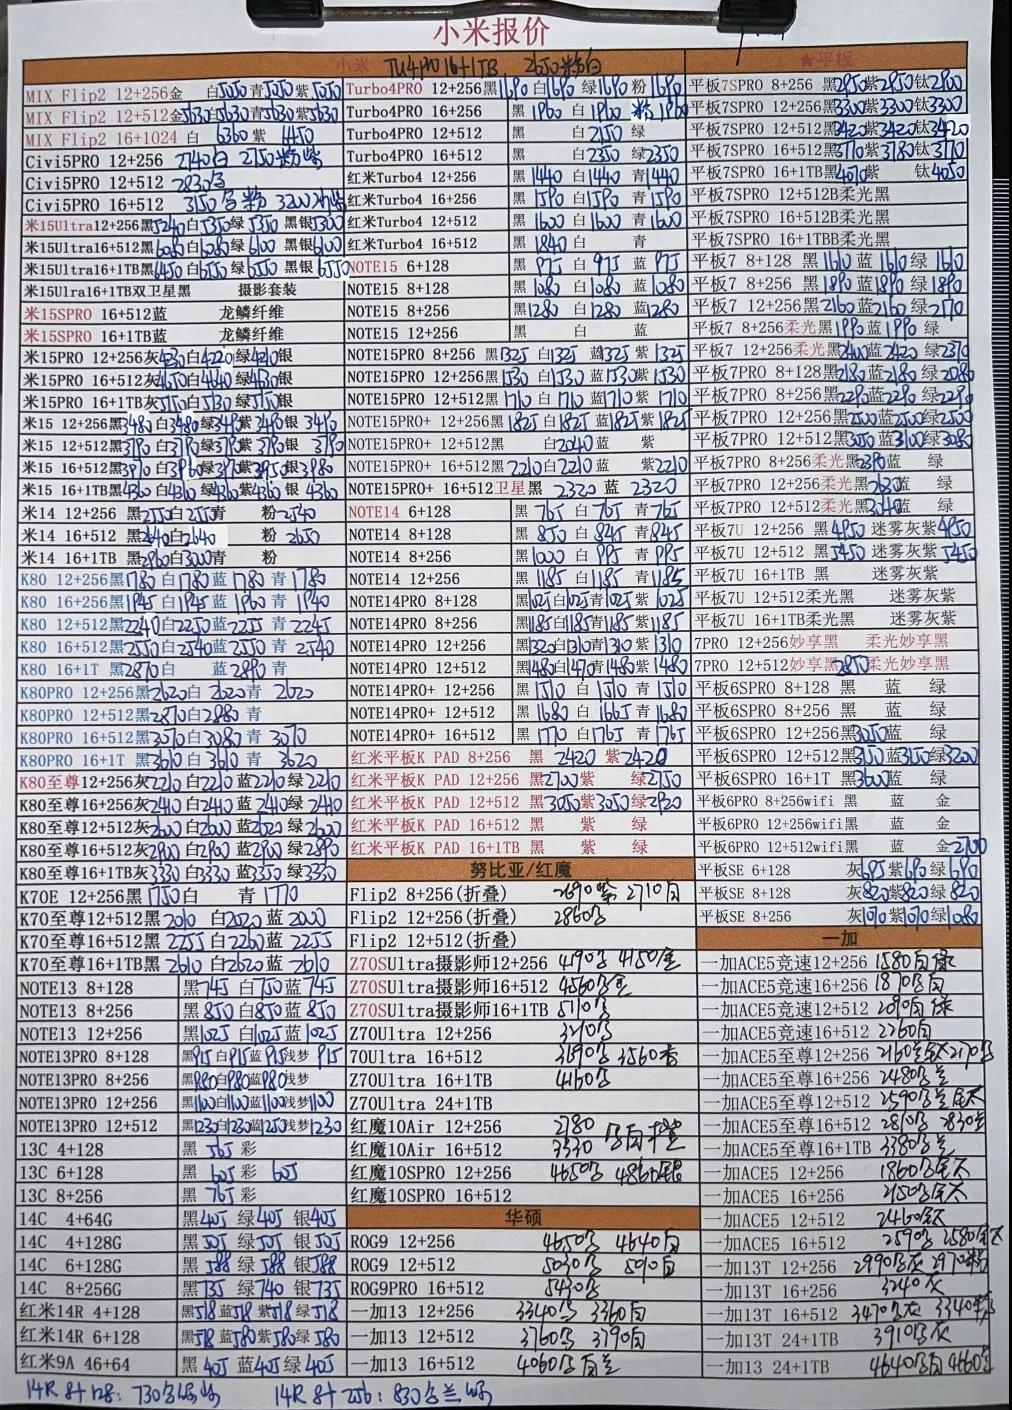 小米报价
小米 TU4PRO 16+1TB 2650 米粉白
★平板
MIX Flip2 12+256金 白5050 青5050 紫5050
MIX Flip2 12+512金5630白5630青5630紫5630
MIX Flip2 16+1024 白 6360 紫
Civi5PRO 12+256 2740白 2750粉紫
Civi5PRO 12+512 2830
Civi5PRO 16+512 3150 3200
米15Ultra12+256黑5240白5350绿5350 黑银5300
米15Ultra16+512黑6080白6080绿6100 黑银6100
米15Ultra16+1TB黑6450白6550绿6550 黑银6550
米15Ulra16+1TB双卫星黑 摄影套装
米15SPRO 16+512蓝 龙鳞纤维
米15SPRO 16+1TB蓝 龙鳞纤维
米15PRO 12+256灰4230白4220绿4210银
米15PRO 16+512灰4650白4640绿4630银
米15PRO 16+1TB灰5150白5130绿5150银
米15 12+256黑3480白3480绿3490紫3490银 3490
米15 12+512黑3790白3790绿3790紫3790银 3790
米15 16+512黑3910白3960绿3970紫3950银3980
米15 16+1TB黑4360白4360绿4360紫4360银 4360
米14 12+256 黑2550白2550青 粉2540
米14 16+512 黑2640白2640 粉 2650
米14 16+1TB 黑2960白3000青 粉
K80 12+256黑1780 白1780 蓝1780 青1780
K80 16+256黑1945 白1945 蓝1960 青1940
K80 12+512黑2240白2250蓝2255 青2245
K80 16+512黑2550白2540蓝2550 青2540
K80 16+1T 黑2870白 蓝2890 青
K80PRO 12+256黑2620白 2620青 2620
K80PRO 12+512黑2870白2880 青
K80PRO 16+512黑3070白3080青 3070
K80PRO 16+1T 黑3610白3610青 3620
K80至尊12+256灰2210白2210蓝2210绿2210
K80至尊16+256灰2410白2410蓝2410绿2410
K80至尊12+512灰2600白2600蓝2620绿2600
K80至尊16+512灰2900白2900蓝2900绿2890
K80至尊16+1TB灰3330白3330蓝3350绿3330
K70E 12+256黑1750白 青1770
K70至尊12+512黑2010白2020蓝2000
K70至尊16+512黑2255白2260蓝2255
K70至尊16+1TB黑2610白2620蓝2610
NOTE13 8+128 黑745 白750 蓝745
NOTE13 8+256 黑850 白850 蓝850
NOTE13 12+256 黑1025 白1025 蓝1025
NOTE13PRO 8+128 黑915白915蓝915浅梦915
NOTE13PRO 8+256 黑980白980蓝980浅梦
NOTE13PRO 12+256 黑1100白1100蓝1100浅梦1100
NOTE13PRO 12+512 黑1230白1230蓝1250浅梦1230
13C 4+128 黑565彩
13C 6+128 黑605彩 605
13C 8+256 黑765彩
14C 4+64G 黑405 绿405 银405
14C 4+128G 黑505 绿505 银505
14C 6+128G 黑588 绿588 银588
14C 8+256G 黑735 绿740 银735
红米14R 4+128 黑518蓝518紫518绿518
红米14R 6+128 黑578蓝580紫580绿580
红米9A 46+64 黑405 蓝405 绿405
14R 8+128: 730 14R 8+256: 830
Turbo4PRO 12+256 黑1690白1690 绿1690粉1690
Turbo4PRO 16+256 黑1960白1960 粉1960
Turbo4PRO 12+512 黑 白2150绿
Turbo4PRO 16+512 黑 白2350绿2350
红米Turbo4 12+256 黑1440白1440 青1440
红米Turbo4 16+256 黑1590白1590 青1590
红米Turbo4 12+512 黑1600白1600 青1600
红米Turbo4 16+512 黑1840白 青
NOTE15 6+128 黑975白975 蓝975
NOTE15 8+128 黑1080白1080 蓝1080
NOTE15 8+256 黑1280白1280 蓝1280
NOTE15 12+256 黑 白 蓝
NOTE15PRO 8+256 黑1325白1325蓝1325紫1325
NOTE15PRO 12+256黑1530白1530蓝1530紫1530
NOTE15PRO 12+512黑1710白1710蓝1710紫1710
NOTE15PRO+ 12+256黑1825白1825蓝1825紫1825
NOTE15PRO+ 12+512黑 白2040蓝 紫
NOTE15PRO+ 16+512黑2210白2210蓝 紫2210
NOTE15PRO+ 16+512卫星黑 2320 蓝 2320
NOTE14 6+128 黑765白765青765
NOTE14 8+128 黑850白845青845
NOTE14 8+256 黑1000白995青995
NOTE14 12+256 黑1185白1185青1185
NOTE14PRO 8+128 黑1025白1025青1025紫1025
NOTE14PRO 8+256 黑1185白1185青1185紫1185
NOTE14PRO 12+256 黑1320白1310青1310紫1310
NOTE14PRO 12+512 黑1480白1470青1480紫1480
NOTE14PRO+ 12+256 黑1510白1510青1510
NOTE14PRO+ 12+512 黑1680白1665青1680
NOTE14PRO+ 16+512 黑1770白1765青1765
红米平板K PAD 8+256 黑 2420 紫2420
红米平板K PAD 12+256 黑2700紫 绿2750
红米平板K PAD 12+512 黑3050紫3050绿2920
红米平板K PAD 16+512 黑 紫 绿
红米平板K PAD 16+1TB 黑 紫 绿
努比亚/红魔
Flip2 8+256(折叠) 2690紫 2710白
Flip2 12+256(折叠) 2860
Flip2 12+512(折叠)
Z70SUltra摄影师12+256 4190 4150
Z70SUltra摄影师16+512 4560
Z70SUltra摄影师16+1TB 5110
Z70Ultra 12+256 3290
70Ultra 16+512 3590 3560
Z70Ultra 16+1TB 4160
Z70Ultra 24+1TB
红魔10Air 12+256 2780
红魔10Air 16+512 3330
红魔10SPRO 12+256 4650 4860银
红魔10SPRO 16+512
华硕
ROG9 12+256 4650 4640白
ROG9 12+512 5030 5090白
ROG9PRO 16+512 5430
一加13 12+256 3340 3360白
一加13 12+512 3760 3790白
一加13 16+512 4060
平板7SPRO 8+256 黑2850紫2850钛2800
平板7SPRO 12+256黑3300紫3300钛3300
平板7SPRO 12+512黑3420紫3420钛3420
平板7SPRO 16+512黑3770紫3780钛3770
平板7SPRO 16+1TB黑4070紫 钛4050
平板7SPRO 12+512B柔光黑
平板7SPRO 16+512B柔光黑
平板7SPRO 16+1TBB柔光黑
平板7 8+128 黑1610蓝1610绿1610
平板7 8+256 黑1890蓝1890绿1890
平板7 12+256黑2160蓝2160绿2170
平板7 8+256柔光黑1990蓝1990绿
平板7 12+256柔光黑2400蓝2420绿2370
平板7PRO 8+128黑2180蓝2180绿2080
平板7PRO 8+256黑2290蓝2290绿2290
平板7PRO 12+256黑2500蓝2500绿2500
平板7PRO 12+512黑3050蓝3100绿3080
平板7PRO 8+256柔光黑2390蓝 绿
平板7PRO 12+256柔光黑2630蓝 绿
平板7PRO 12+512柔光黑3040蓝 绿
平板7U 12+256 黑4950 迷雾灰紫4950
平板7U 12+512 黑5450 迷雾灰紫5450
平板7U 16+1TB 黑 迷雾灰紫
平板7U 12+512柔光黑 迷雾灰紫
平板7U 16+1TB柔光黑 迷雾灰紫
7PRO 12+256妙享黑 柔光妙享黑
7PRO 12+512妙享黑2850柔光妙享黑
平板6SPRO 8+128 黑 蓝 绿
平板6SPRO 8+256 黑 蓝 绿
平板6SPRO 12+256黑3050蓝 绿
平板6SPRO 12+512黑3150蓝3150绿3200
平板6SPRO 16+1T 黑3600蓝 绿
平板6PRO 8+256wifi 黑 蓝 金
平板6PRO 12+256wifi黑 蓝 金
平板6PRO 12+512wifi黑 蓝 金2700
平板SE 6+128 灰695紫690绿690
平板SE 8+128 灰820紫820绿820
平板SE 8+256 灰1070紫1070绿1080
一加
一加ACE5竞速12+256 1580白绿
一加ACE5竞速16+256 1870白
一加ACE5竞速12+512 2090白绿
一加ACE5竞速16+512 2260白
一加ACE5至尊12+256 2160 2170
一加ACE5至尊16+256 2480
一加ACE5至尊12+512 2590
一加ACE5至尊16+512 2810 2830
一加ACE5至尊16+1TB 3380
一加ACE5 12+256 1860
一加ACE5 16+256 2150
一加ACE5 12+512 2460
一加ACE5 16+512 2590 2580
一加13T 12+256 2990 2970
一加13T 16+256 3240灰
一加13T 16+512 3470 3340
一加13T 24+1TB 3910
一加13 24+1TB 4640 4660